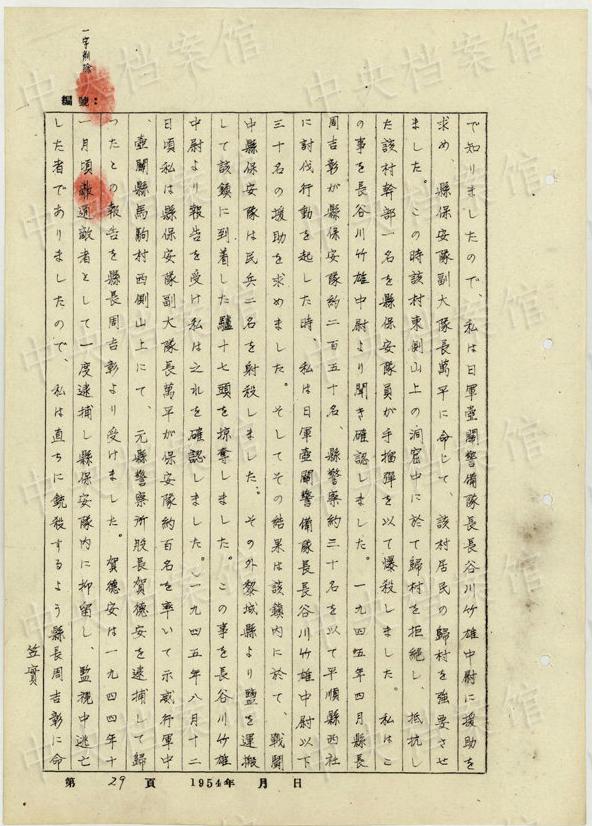 一字削除
編號：
で知りましたので、私は日軍壺關警備隊長長谷川竹雄中尉に援助を
求め、縣保安隊副大隊長萬平に命じて、該村居民の歸村を強要させ
ました。この時該村東側山上の洞窟中に於て歸村を拒絶し、抵抗し
た該村幹部一名を縣保安隊員が手榴彈を以て爆殺しました。私はこ
の事を長谷川竹雄中尉より聞き確認しました。一九四五年四月縣長
周吉彰が縣保安隊約二百五十名、縣警察約三十名を以て平順縣西社
に討伐行動を起した時、私は日軍壺關警備隊長長谷川竹雄中尉以下
三十名の援助を求めました。そしてその結果は該鎮内に於て、戰鬪
中縣保安隊は民兵二名を射殺しました。その外黎城縣より鹽を運搬
して該鎮に到着した驢十七頭を掠奪しました。この事を長谷川竹雄
中尉より報告を受け私は之れを確認しました。一九四五年八月十二
日頃私は縣保安隊副大隊長萬平が保安隊約百名を率いて示威行軍中
、壺關縣馬駒村西側山上にて、元縣警察所股長賀德安を逮捕して歸
つたとの報告を縣長周吉彰より受けました。賀德安は一九四四年十
一月頃通敵者として一度逮捕し縣保安隊内に抑留し、監視中逃亡
した者でありましたので、私は直ちに銃殺するよう縣長周吉彰に命
笠實
第 29 頁 1954年 月 日
中央档案馆
中央档案馆
中央档案馆
中央档案馆
中央档案馆
中央档案馆